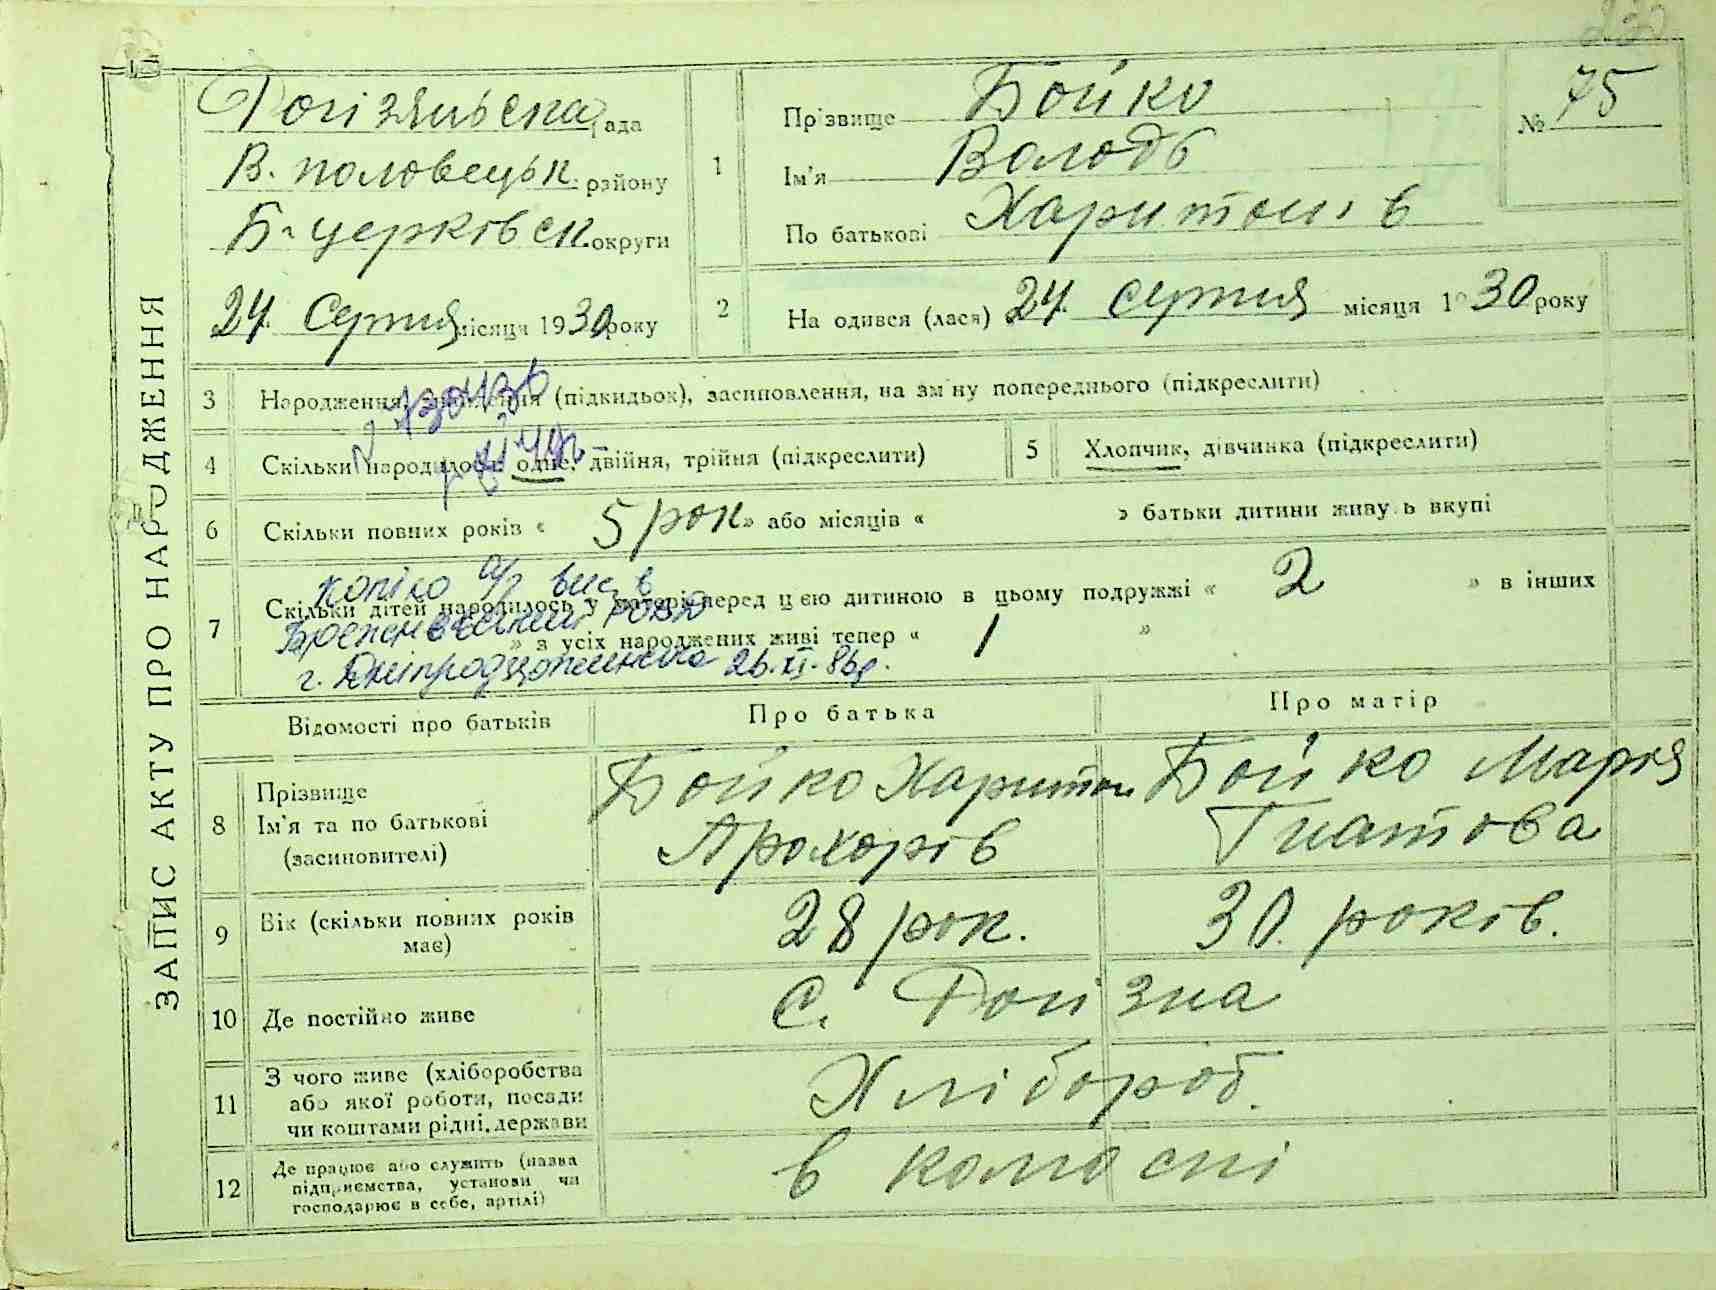 ЗАПИС АКТУ ПРО НАРОДЖЕННЯ
Рогізнянська рада
В. половецьк. району
Б-церківськ. округи
24. Серпня місяця 1930 року
1
Прізвище Бойко
Ім'я Володь
По батькові Харитонів
№ 75
2 На одився (лася) 24. серпня місяця 1930 року
3 Народження, (підкидьок), засиновлення, на зм ну попереднього (підкреслити)
4 Скільки народилось: одне, двійня, трійня (підкреслити)
5 Хлопчик, дівчинка (підкреслити)
6 Скільки повних років « 5 рок » або місяців « » батьки дитини живуть вкупі
7 Скільки дітей народилось у матері перед цією дитиною в цьому подружжі « 2 » в інших
» з усіх народжених живі тепер « 1 »
копію а/з вис в
г. Дніпродзержинська 26.XI.86р.
Відомості про батьків
Про батька
Про матір
8 Прізвище
Ім'я та по батькові
(засиновителі)
Бойко Харитон
Прохорів
Бойко Марія
Гнатова
9 Вік (скільки повних років
має)
28 рок.
30. років.
10 Де постійно живе
С. Рогізна
11 З чого живе (хліборобства
або якої роботи, посади
чи коштами рідні, держави
Хлібороб.
12 Де працює або служить (назва
підприємства, установи чи
господарює в себе, артілі)
в колгоспі